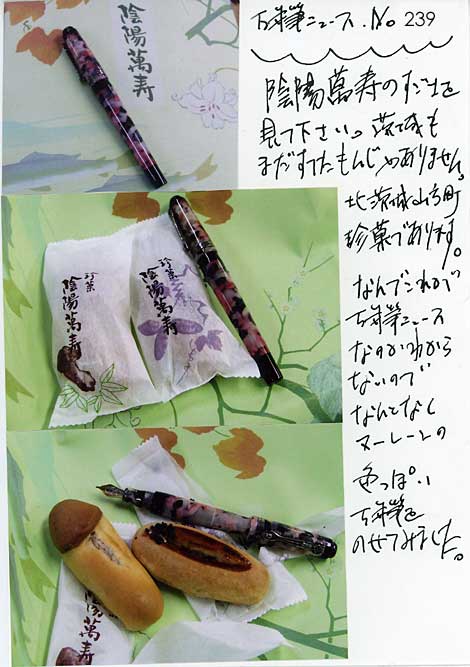 万年筆ニュース.No 239
陰陽萬寿のすごさを
見て下さい。茨城も
まだすてたもんじゃありません。
北茨城山方町
珍菓であります。
なんでこれが
万年筆ニュース
なのかわから
ないので
なんとなく
ヌーレーンの
色っぽい
万年筆を
のせてみました。
陰陽萬寿
珍菓
陰陽萬寿
珍菓
陰陽萬寿
陰陽萬寿